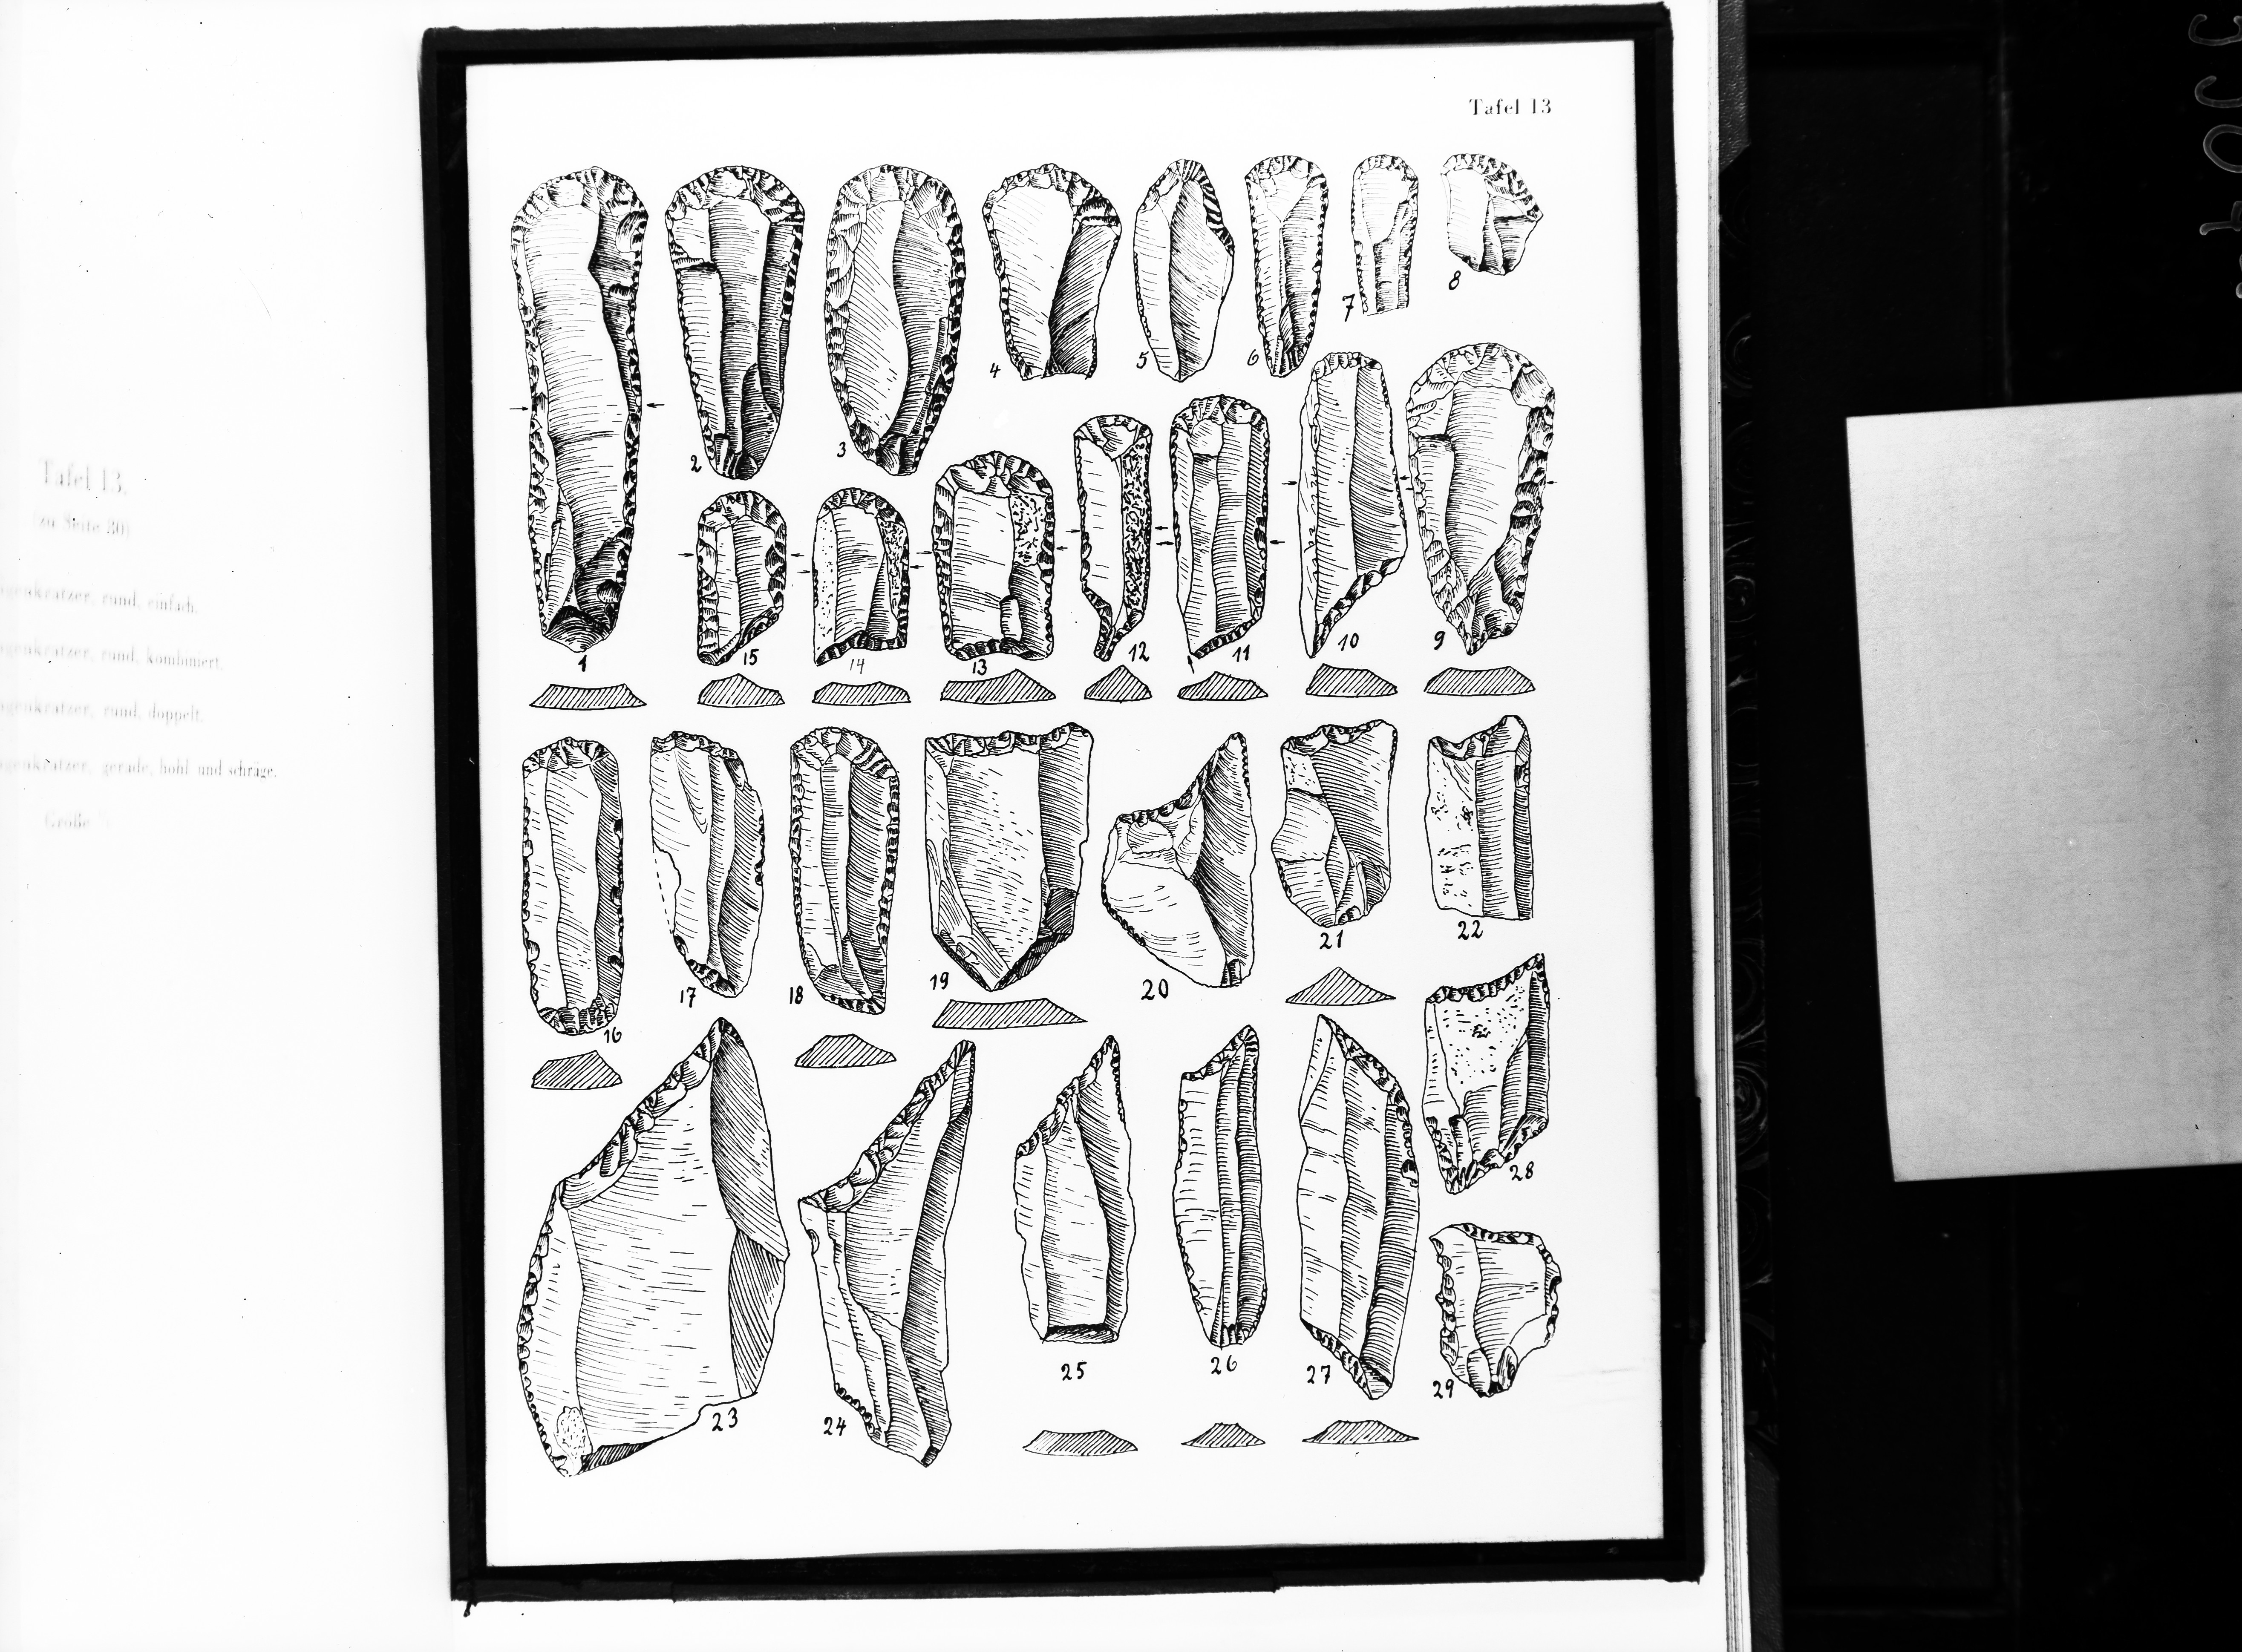 Tafel 13
1
2
3
4
5
6
7
8
9
10
11
12
13
14
15
16
17
18
19
20
21
22
23
24
25
26
27
28
29
Tafel 13.
(zu Seite 30)
rund, einfach.
rund, kombiniert.
rund, doppelt.
gerade, hohl und schräge.
Größe